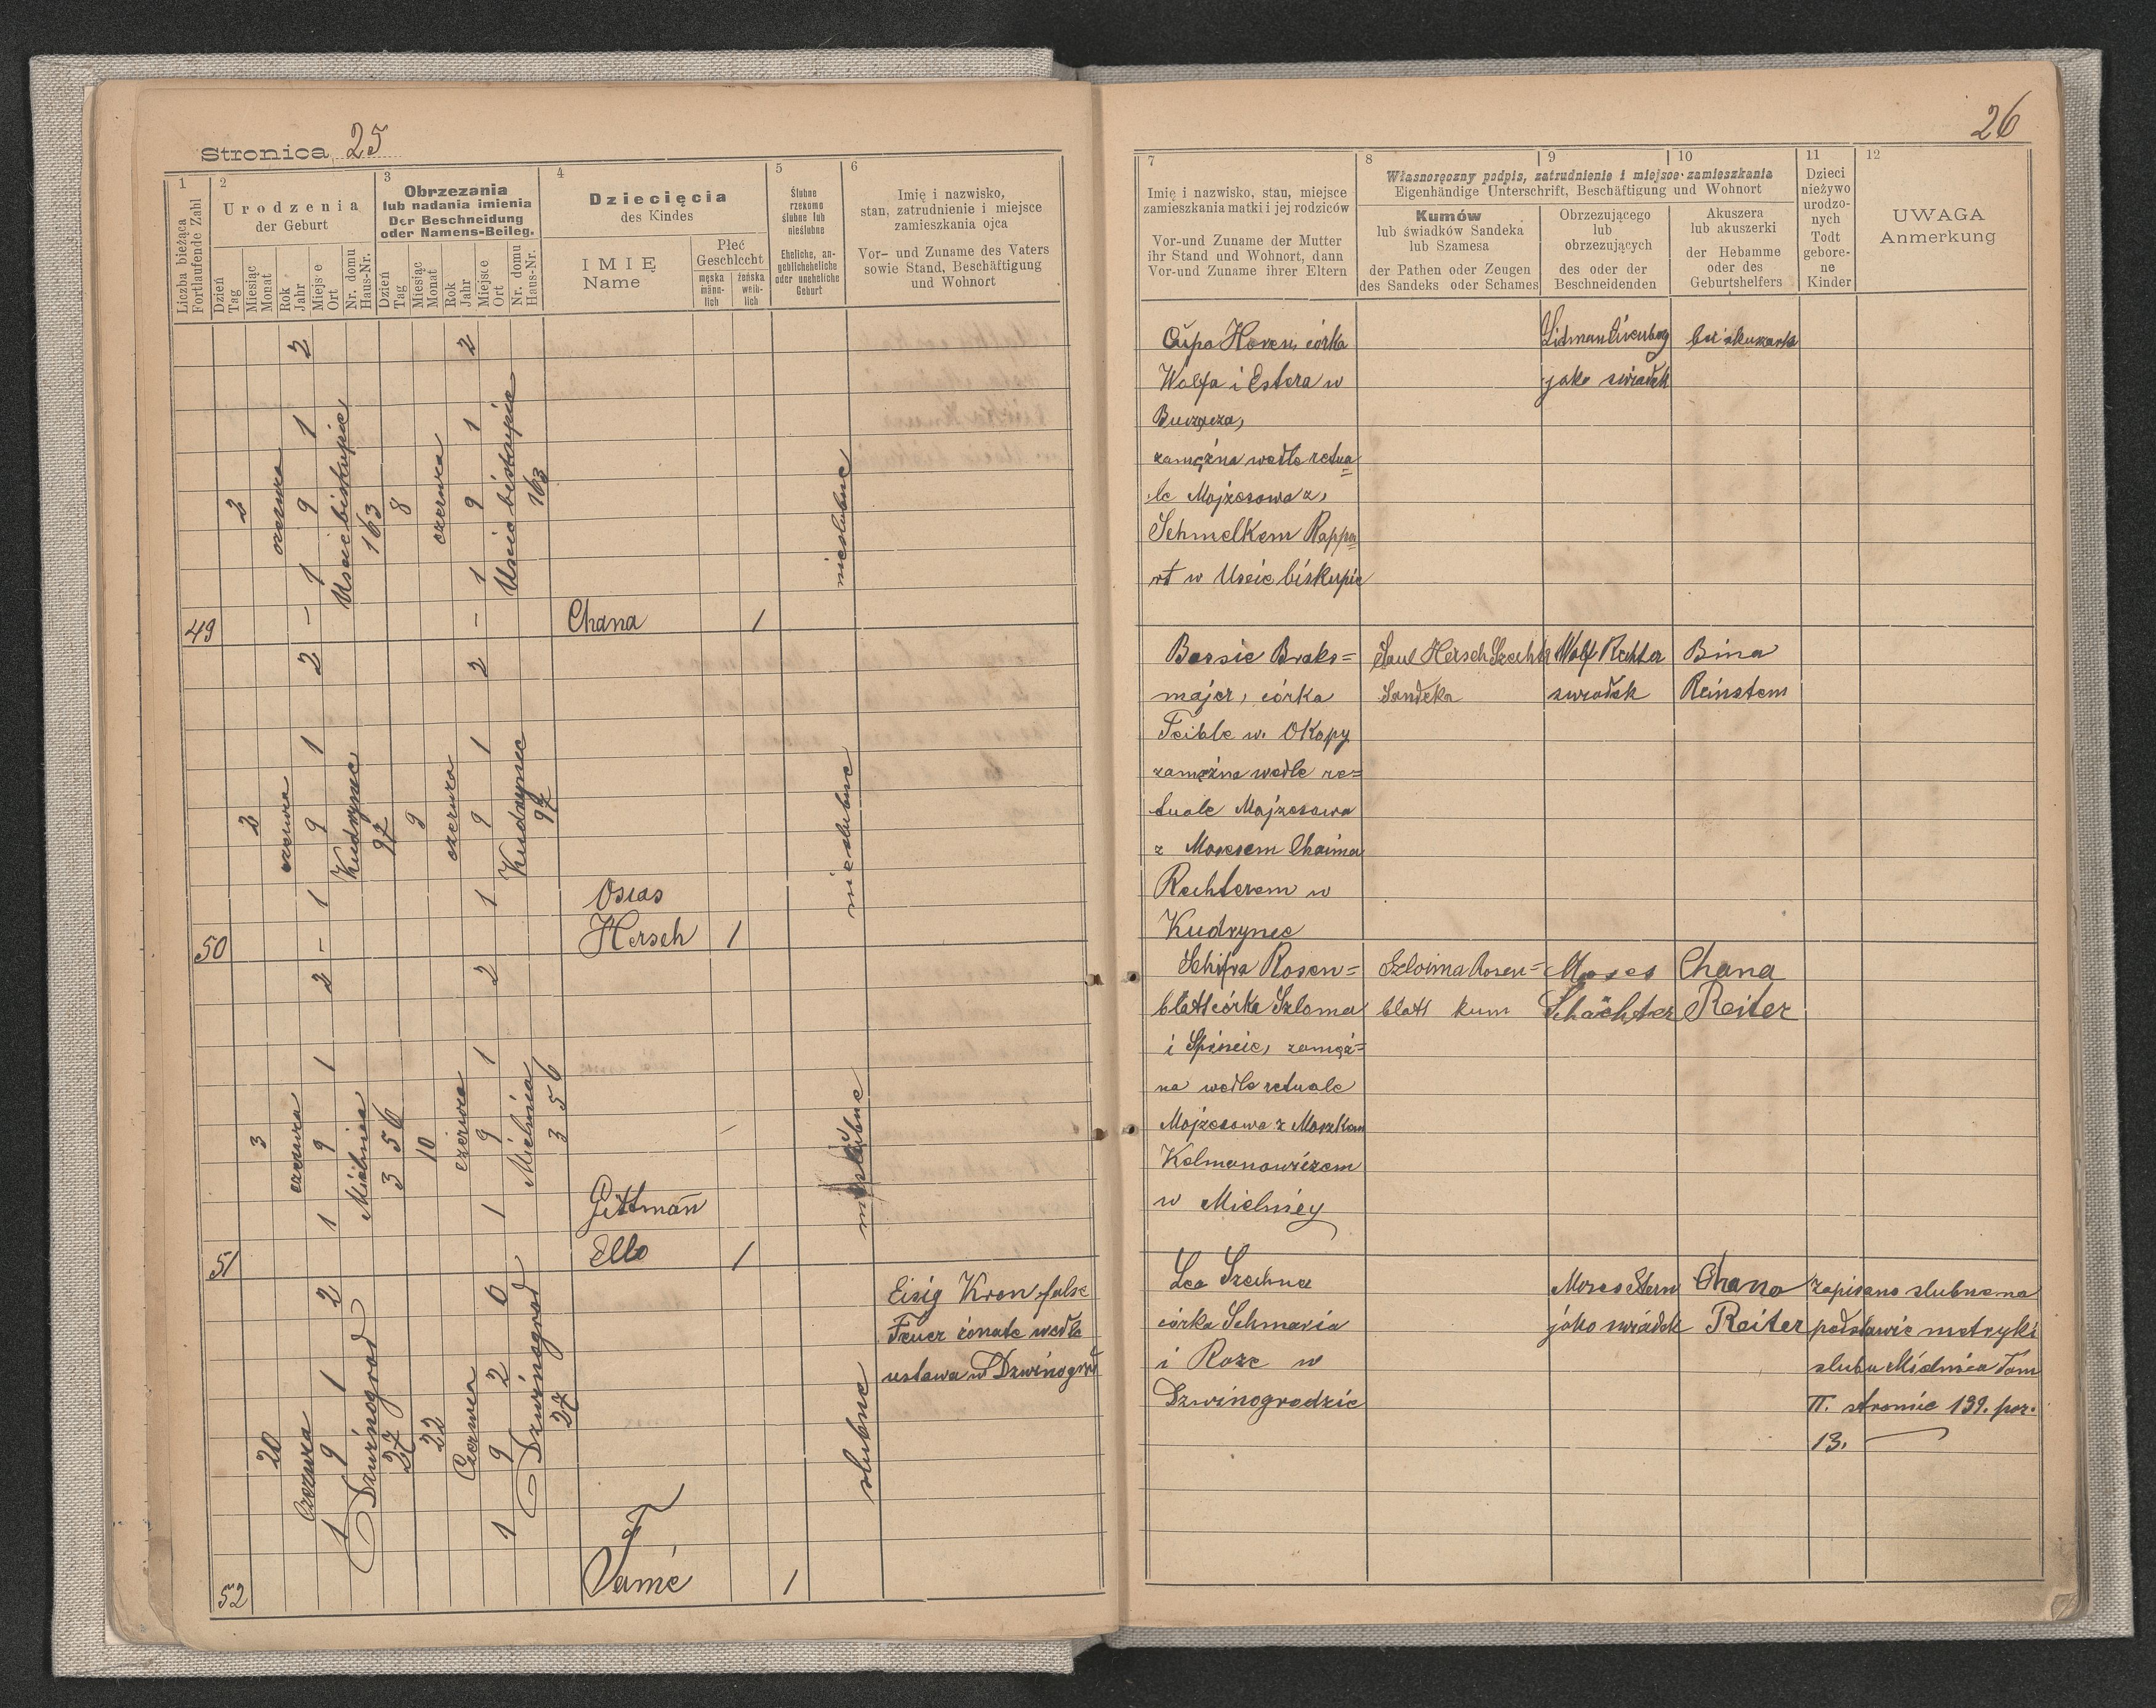 Stronica 25
1
2
Urodzenia
der Geburt
3
Obrzezania
lub nadania imienia
Der Beschneidung
oder Namens-Beileg.
4
Dziecięcia
des Kindes
5
Ślubne
rzekomo
ślubne lub
nieślubne
Eheliche, an-
geblicheheliche
oder uneheliche
Geburt
6
Imię i nazwisko,
stan, zatrudnienie i miejsce
zamieszkania ojca
Vor- und Zuname des Vaters
sowie Stand, Beschäftigung
und Wohnort
Liczba bieżąca
Fortlaufende Zahl
Dzień
Tag
Miesiąc
Monat
Rok
Jahr
Miejsce
Ort
Nr. domu
Haus-Nr.
Dzień
Tag
Miesiąc
Monat
Rok
Jahr
Miejsce
Ort
Nr. domu
Haus-Nr.
IMIĘ
Name
Płeć
Geschlecht
męska
männ-
lich
żeńska
weib-
lich
49
2
czerwca
1912
Uscie biskupie
163
8
czerwca
1912
Uscie biskupie
163
Chana
1
nieslubne
50
2
czerwca
1912
Kudrynce
97
9
czerwca
1912
Kudrynce
97
Osias
Hersch
1
nieslubne
51
3
czerwca
1912
Mielnica
356
10
czerwca
1912
Mielnica
356
Gittmann
Ello
1
nieslubne
52
20
czerwca
1912
Dzwinogrod
27
22
Czerwca
1920
Dzwinogrod
27
Fanie
1
slubne
Eisig Kron false
Feuer żonate wedle
ustawa w Dzwinogrod
26
7
Imię i nazwisko, stan, miejsce
zamieszkania matki i jej rodziców
Vor-und Zuname der Mutter
ihr Stand und Wohnort, dann
Vor-und Zuname ihrer Eltern
8
9
10
Własnoręczny podpis, zatrudnienie i miejsce zamieszkania
Eigenhändige Unterschrift, Beschäftigung und Wohnort
Kumów
lub świadków Sandeka
lub Szamesa
der Pathen oder Zeugen
des Sandeks oder Schames
Obrzezującego
lub
obrzezujących
des oder der
Beschneidenden
Akuszera
lub akuszerki
der Hebamme
oder des
Geburtshelfers
11
Dzieci
nieżywo
urodzo-
nych
Todt
gebore-
ne
Kinder
12
UWAGA
Anmerkung
Horen, córka
Wolfa i Estera w
Buczacza,
zamężna wedle retua=
le Mojżesowa z,
Schmelkem Rappo=
rt w Uscie biskupie
jako swiadek
bez akuszerka
Bossie Braks=
majer, córka
Feible w. Okopy
zamężna wedle re=
tuale Mojzesowa
z Mosesem Chaima
Rechterem w
Kudrynce
Saul Hersch Szechter
Sandeka
Wolf Rechter
swiadek
Bina
Reinstein
Schifra Rosen=
blatt córka Szloma
i zamęż=
na wedle retuale
Mojzesowa z Moszkem
Kelmanowiczem
w Mielnicy
Szloima Rosen=
blatt kum
Moses
Schächter
Chana
Reiter
Lea Szechner
córka Schmaria
i Roze w
Dzwinogrodzie
Moses Stern
jako swiadek
Chana
Reiter
zapisano slubne na
podstawie metryki
slubu Mielnica Tom
II. stronic 139. poz.
13.